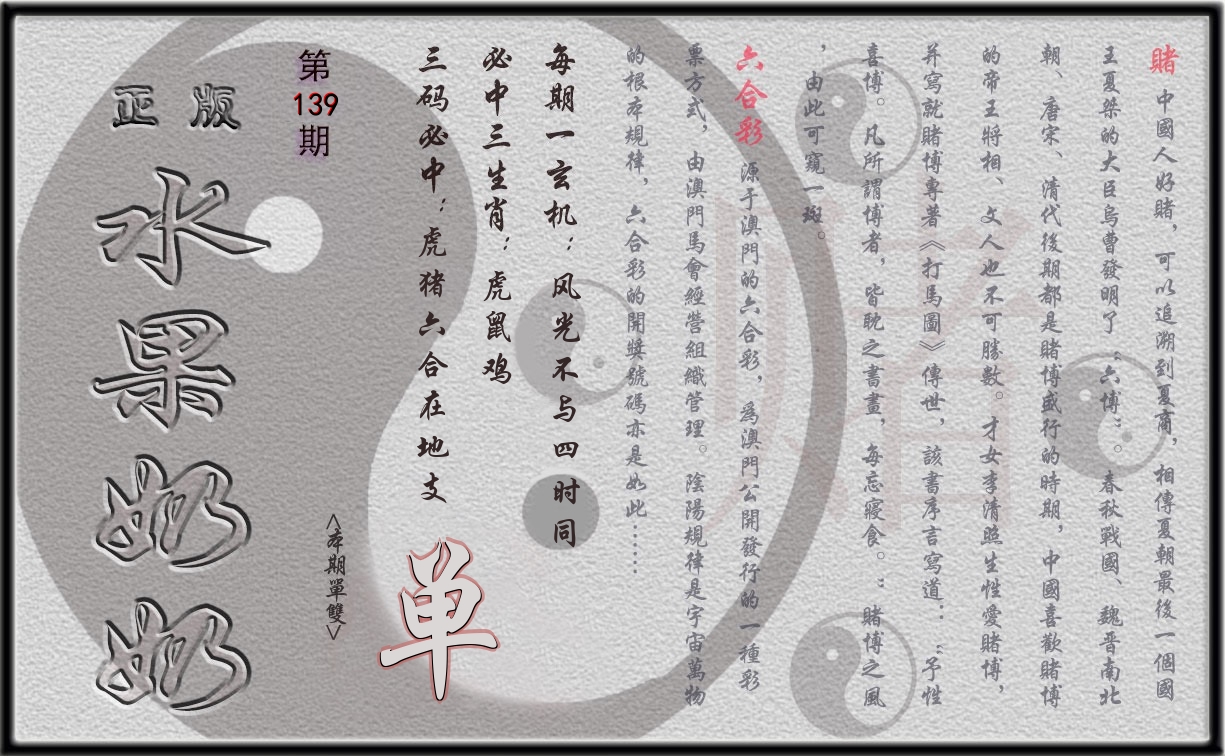 賭 中國人好賭，可以追溯到夏商，相傳夏朝最後一個國
王夏桀的大臣烏曹發明了“六博”。春秋戰國、魏晋南北
朝、唐宋、清代後期都是賭博盛行的時期，中國喜歡賭博
的帝王將相、文人也不可勝數。才女李清照生性愛賭博，
并寫就賭博專著《打馬圖》傳世，該書序言寫道：“予性
喜博。凡所謂博者，皆耽之書畫，每忘寢食。”賭博之風
，由此可窺一斑。
六合彩 源于澳門的六合彩，爲澳門公開發行的一種彩
票方式，由澳門馬會經營組織管理。陰陽規律是宇宙萬物
的根本規律，六合彩的開獎號碼亦是如此……
每期一玄机：风光不与四时同
必中三生肖：虎鼠鸡
三码必中：虎猪六合在地支
单
<本期單雙>
第
139
期
正版
水果奶奶